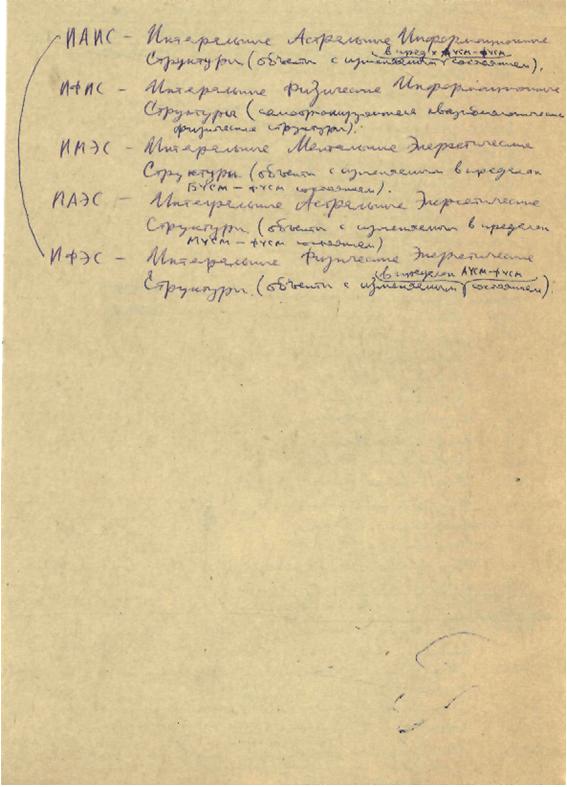 ИАИС - Интегральные Астральные Информационные
в пред. АУСМ-ФУСМ
Структуры (объекты с изменяемым состоянием).
ИФИС - Интегральные Физические Информационные
Структуры (самофокусирующиеся квазибиологические
физические структуры).
ИМЭС - Интегральные Ментальные Энергетические
Структуры. (объекты с изменяемым в пределах
БУСМ - ФУСМ состоянием).
ИАЭС - Интегральные Астральные Энергетические
Структуры. (объекты с изменяемым в пределах
МУСМ - ФУСМ состоянием)
ИФЭС - Интегральные Физические Энергетические
в пределах АУСМ-ФУСМ
Структуры. (объекты с изменяемым состоянием).